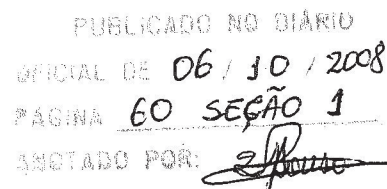 PUBLICADO NO DIÁRIO
OFICIAL DE 06 / 10 / 2008
PÁGINA 60 SEÇÃO 1
ANOTADO POR: